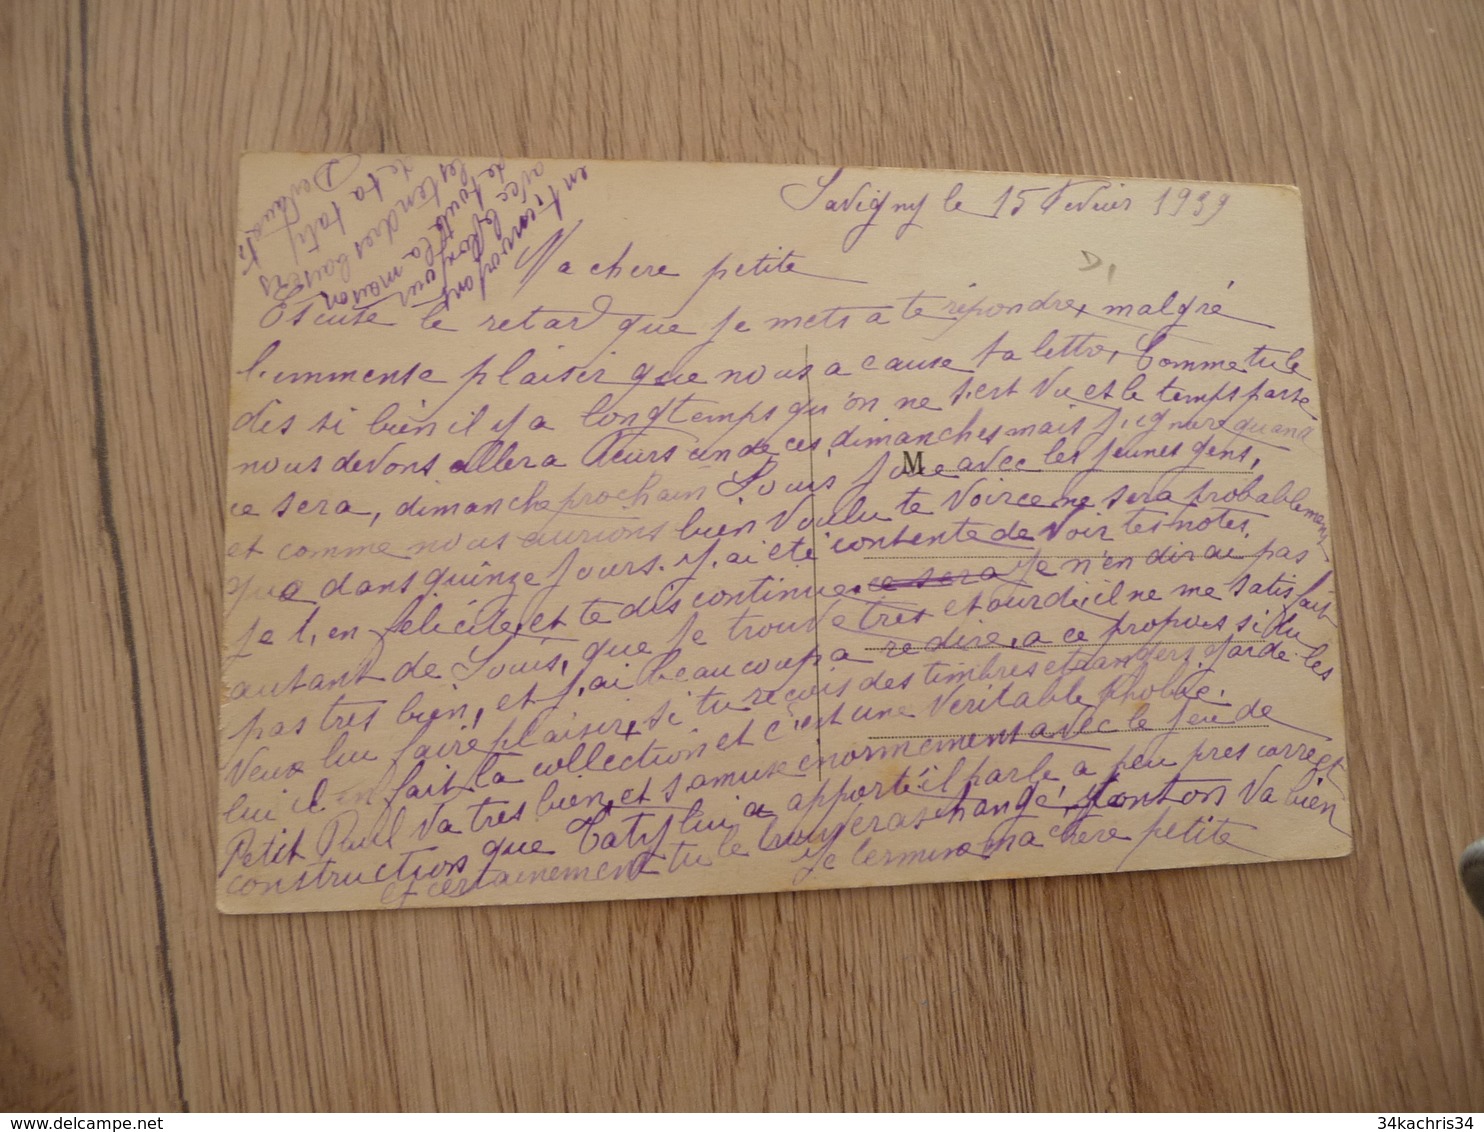 Savigny le 15 Fevrier 1939
Ma chere petite
Escuse le retard que je mets a te répondre, malgré
l'immense plaisir que nous a cause ta lettre, Comme tu le
dis si bien il y a longtemps qu'on ne s'est vu et le temps passe
nous devons aller a un de ces dimanches mais j'ignore quand
ce sera, dimanche prochain Louis joue avec les jeunes gens,
et comme nous aurions bien voulu te voir ce ne sera probablement
que dans quinze jours. j'ai été contente de voir tes notes.
je t'en félicite, et te dis continue. ce sera Je n'en dirai pas
autant de Louis, que je trouve tres etourdi il ne me satisfait
pas tres bien, et j'ai beaucoup a redire, a ce propos si tu
veux lui faire plaisir, si tu recois des timbres etrangers garde-les
lui il en fait la collection et c'est une veritable phobie.
Petit Paul va tres bien, et s'amuse enormement avec le jeu de
construction que Taty lui a apporté il parle a peu pres correct
et certainement tu le trouveras changé, Tonton va bien
Je termine ma chere petite
en t'envoyant
avec le bonjour
de toute la maison
les tendres baisers
de ta taty
M
34kachris34